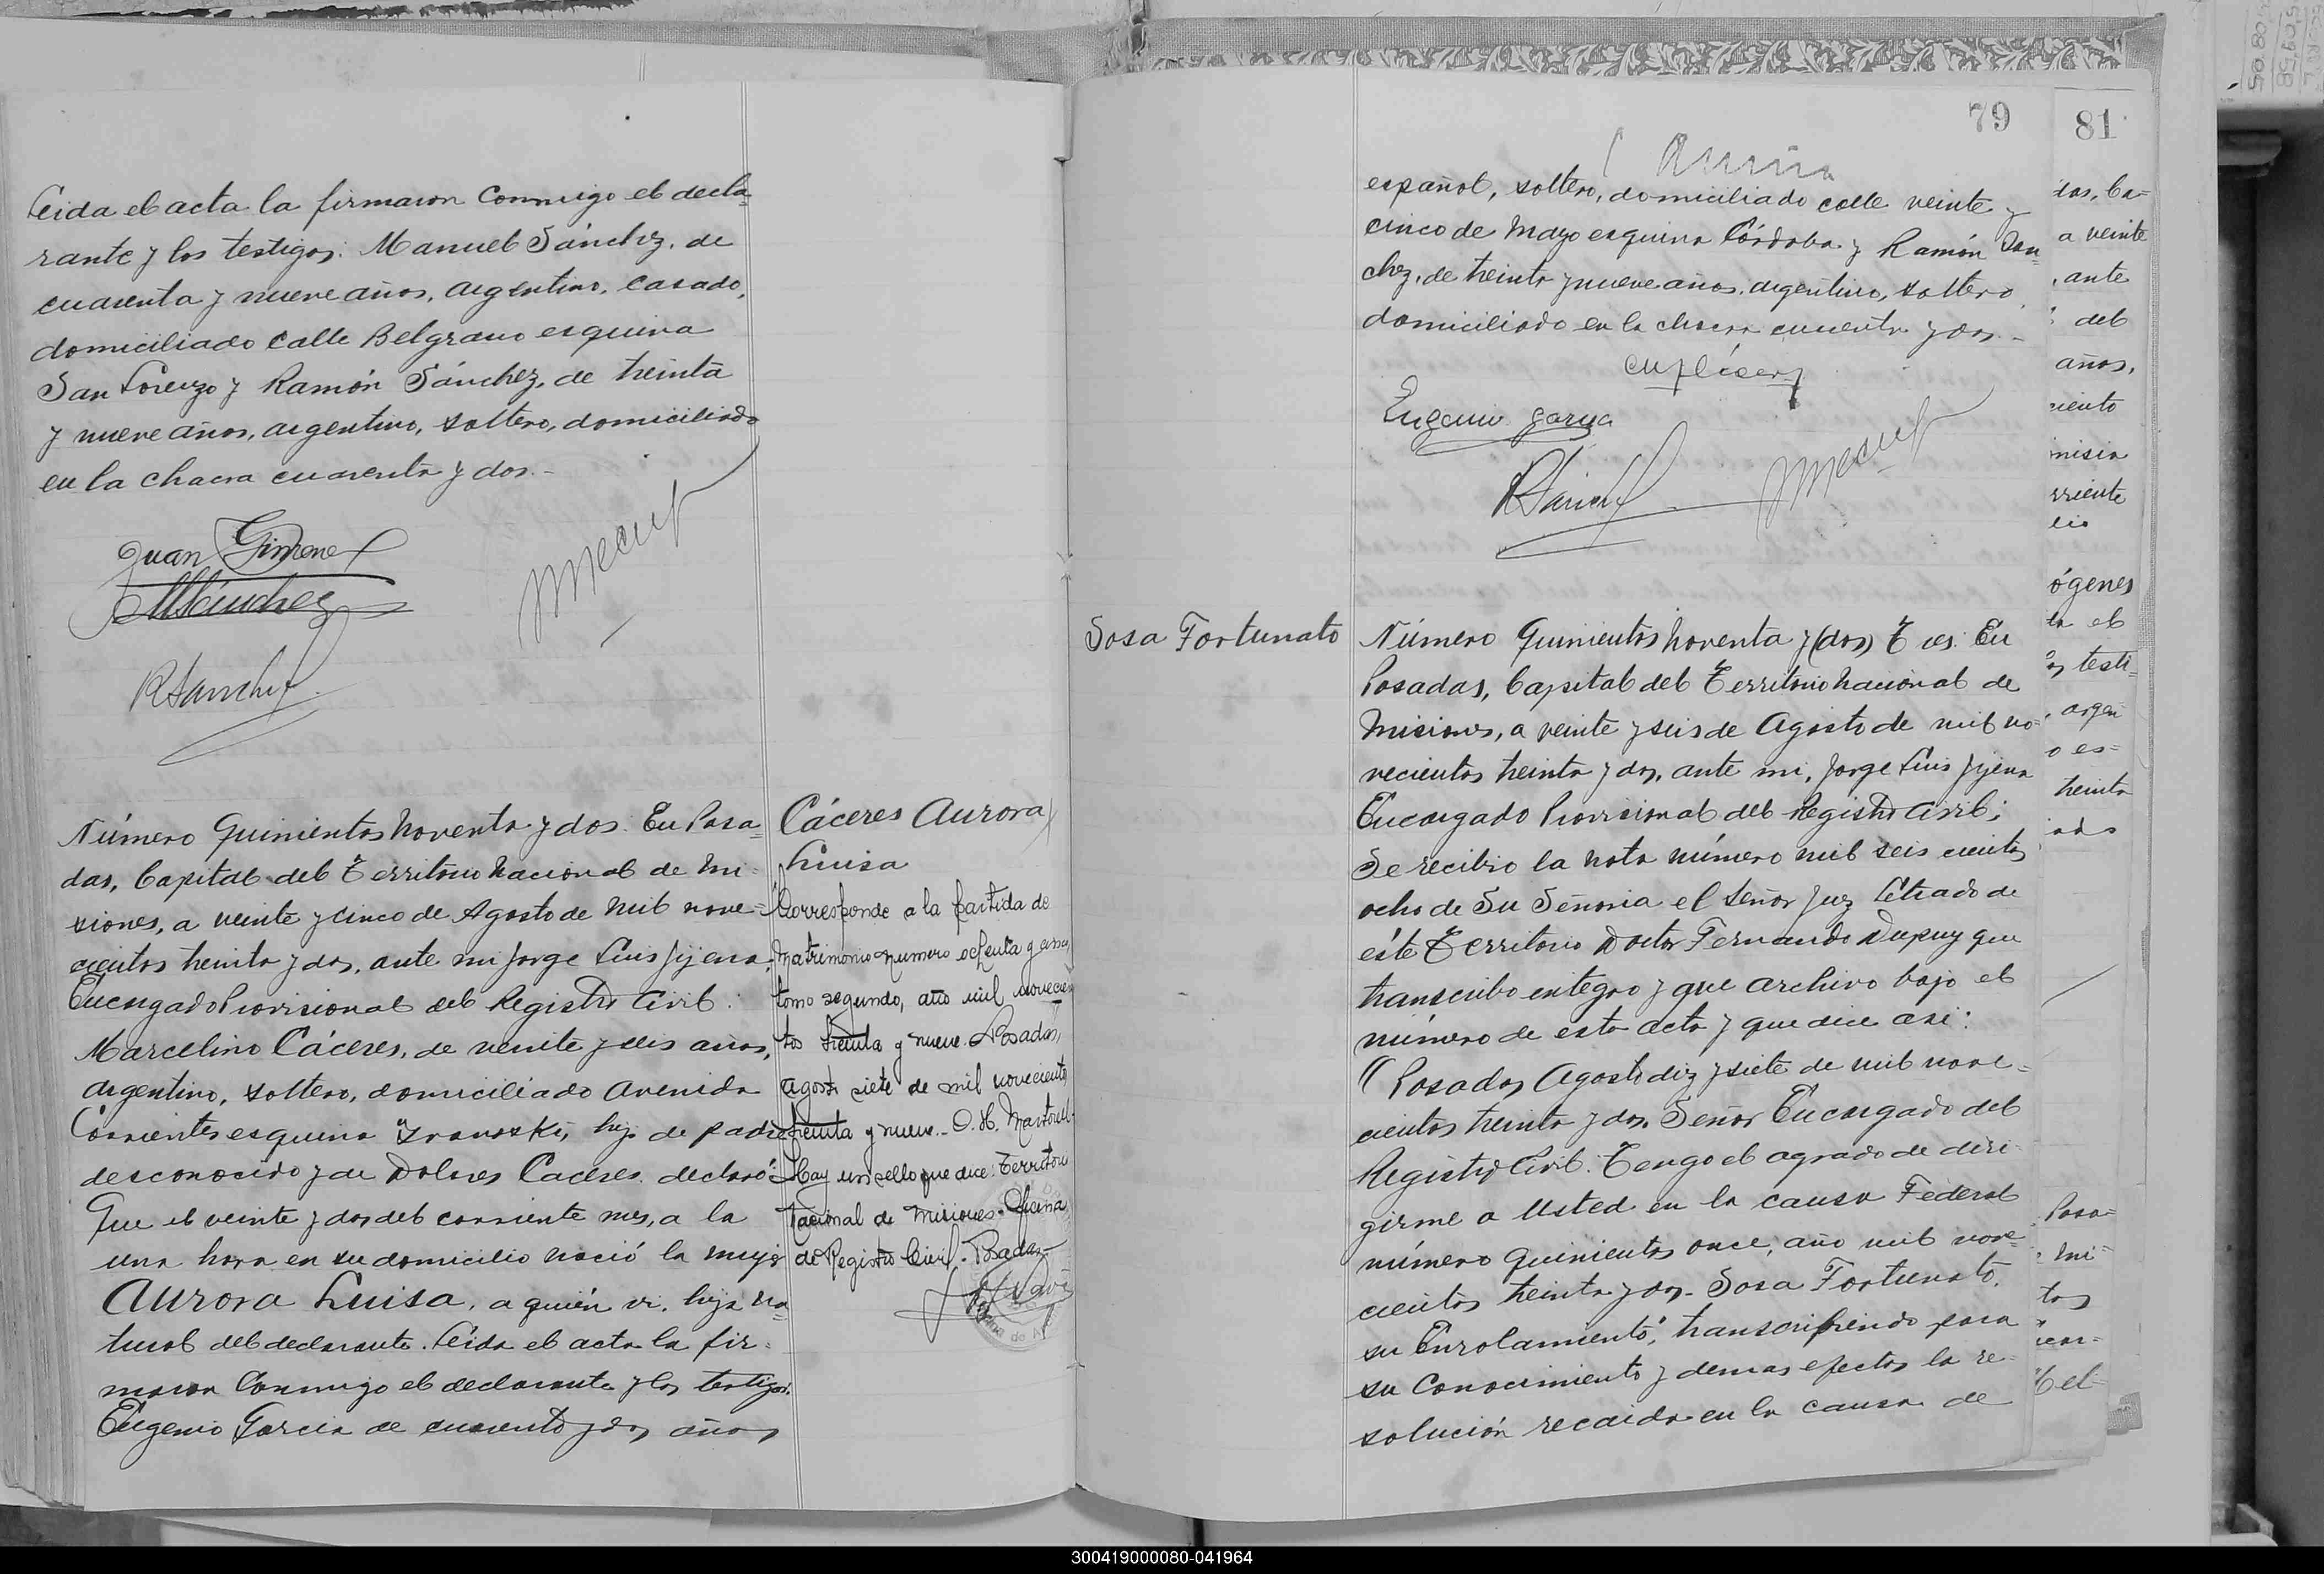 Leida el acta la firmaron conmigo el decla-
rante y los testigos: Manuel Sánchez, de
cuarenta y nueve años, argentino, casado,
domiciliado calle Belgrano esquina
San Lorenzo y Ramón Sánchez, de treinta
y nueve años, argentino, soltero, domiciliado
en la chacra cuarenta y dos.-
Juan Gimenez
MSánchez
RSanchez
Número Quinientos noventa y dos. En Posa-
das, Capital del Territorio Nacional de Mi-
siones, a veinte y cinco de Agosto de mil nove-
cientos treinta y dos, ante mi Jorge Luis Jijena,
Encargado Provisional del Registro Civil:
Marcelino Cáceres, de veinte y seis años,
argentino, soltero, domiciliado Avenida
Corrientes esquina hijo de padre
desconocido y de Dolores Caceres, declaró:
Que el veinte y dos del corriente mes, a la
una hora en su domicilio nació la mujer
Aurora Luisa, a quién vi, hija na-
tural del declarante. Leida el acta la fir-
maron conmigo el declarante y los testigos:
Eugenio Garcia de cuarenta y dos años
Cáceres Aurora
Luisa
Corresponde a la partida de
matrimonio numero ochenta y
tomo segundo, año mil novecien
tos treinta y nueve. Posadas,
agosto siete de mil novecientos
treinta y nueve.- O. H.
Hay un sello que dice: Territorio
Nacional de Misiones. Oficina
de Registro Civil. Posadas
79
español, soltero, domiciliado calle veinte y
cinco de Mayo esquina Córdoba y Ramón San-
chez, de treinta y nueve años, argentino, soltero,
domiciliado en la chacra cuarenta y dos.-
Eugenio garcia
RSanchez
Sosa Fortunato
Número Quinientos noventa y (dos) Tres. En
Posadas, Capital del Territorio Nacional de
Misiones, a veinte y seis de Agosto de mil no-
vecientos treinta y dos, ante mi, Jorge Luis Jijena
Encargado Provisional del Registro Civil;
Se recibio la nota número mil seis cientos
ocho de Su Señoria el Señor Juez Letrado de
éste Territorio Doctor Fernando Dupuy que
transcribo integro y que archivo bajo el
número de esta acta y que dice asi:
"Posadas, Agosto diez y siete de mil nove-
cientos treinta y dos. Señor Encargado del
Registro Civil. Tengo el agrado de diri-
girme a Usted en la causa Federal
número quinientos once, año mil nove-
cientos treinta y dos- Sosa Fortunato,
su Enrolamiento", transcribiendo para
su conocimiento y demas efectos la re-
solución recaida en la causa de
81
das, Ca-
a veinte
, ante
del
años,
ógenes
testi-
argen
o es-
treinta
Posa-
Mi-
tos
el
300419000080-041964